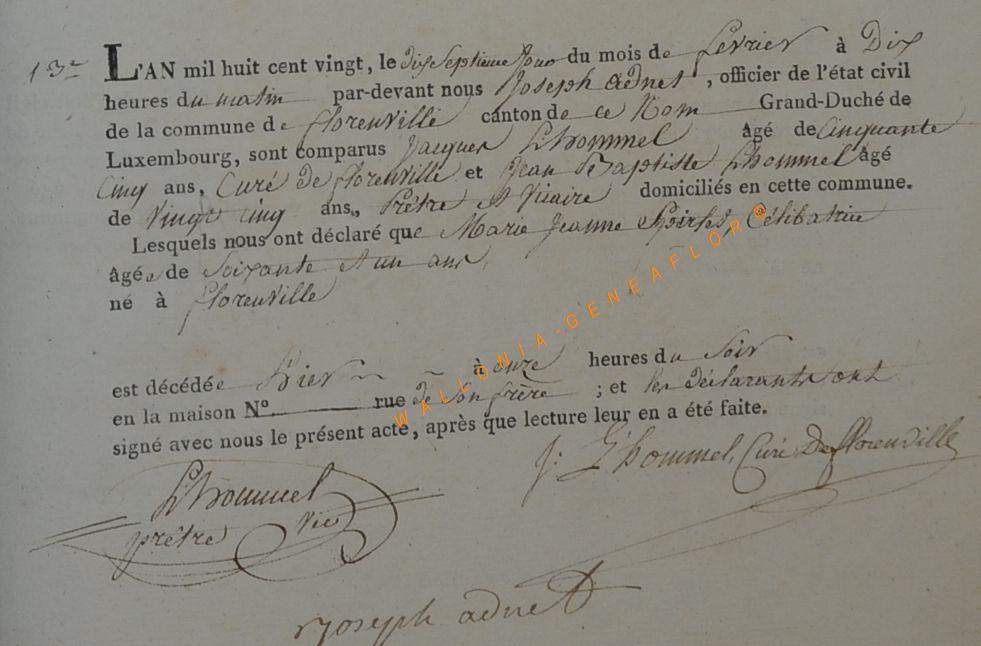 13e
L'AN mil huit cent vingt, le dix Septieme Jour du mois de fevrier à Dix
heures du matin par-devant nous Joseph adnet, officier de l'état civil
de la commune de florenville canton de ce Nom Grand-Duché de
Luxembourg, sont comparus Jacques Lhommel âgé de Cinquante
Cinq ans, Curé de florenville et Jean Baptiste Lhommel âgé
de vingt cinq ans, Prêtre et Vicaire domiciliés en cette commune.
Lesquels nous ont déclaré que Marie Jeanne Célibatrice
âgée de Soixante et un ans,
né à florenville
est décédée hier à onze heures du Soir
en la maison No. rue de Son frère ; et les déclarants ont
signé avec nous le présent acte, après que lecture leur en a été faite.
J: Lhommel, Curé De florenville
Lhommel
prêtre vic
Joseph adnet
WALLONIA-GENEAFLOR®